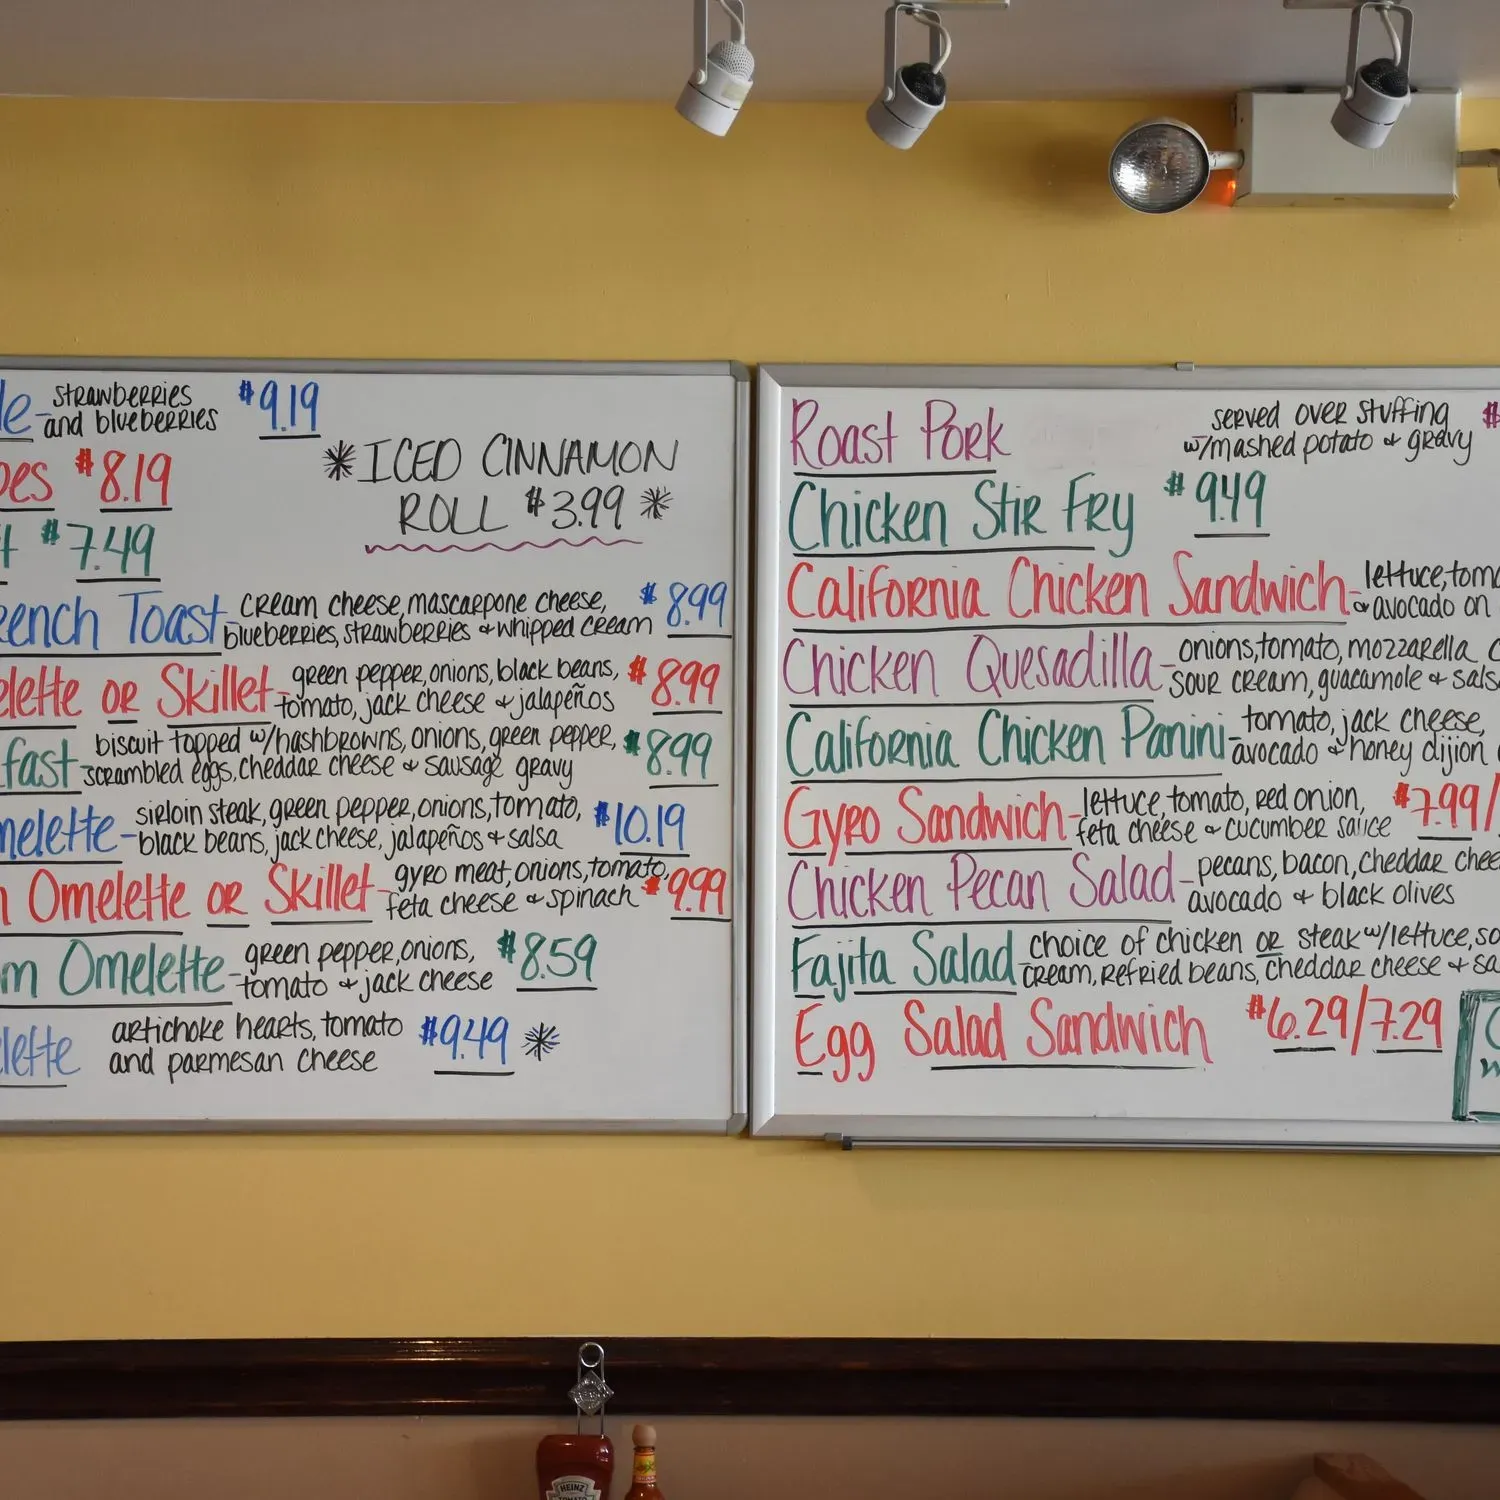 strawberries $9.19
and blueberries
$8.19
$7.49
*ICED CINNAMON
ROLL $3.99*
French Toast - cream cheese, mascarpone cheese, $8.99
blueberries, strawberries & whipped cream
or Skillet - green pepper, onions, black beans, $8.99
tomato, jack cheese & jalapeños
biscuit topped w/hashbrowns, onions, green pepper, $8.99
scrambled eggs, cheddar cheese & sausage gravy
sirloin steak, green pepper, onions, tomato, $10.19
black beans, jack cheese, jalapeños & salsa
Omelette or Skillet - gyro meat, onions, tomato, $9.99
feta cheese & spinach
Omelette - green pepper, onions, $8.59
tomato & jack cheese
artichoke hearts, tomato $9.49*
and parmesan cheese
Roast Pork served over stuffing $
w/mashed potato & gravy
Chicken Stir Fry $9.49
California Chicken Sandwich - lettuce,
& avocado on
Chicken Quesadilla - onions, tomato, mozzarella
sour cream, guacamole & salsa
California Chicken Panini - tomato, jack cheese,
avocado & honey dijion
Gyro Sandwich - lettuce, tomato, red onion, $7.99/
feta cheese & cucumber sauce
Chicken Pecan Salad - pecans, bacon, cheddar
avocado & black olives
Fajita Salad - choice of chicken or steak w/lettuce,
cream, refried beans, cheddar cheese &
Egg Salad Sandwich $6.29/7.29
HEINZ